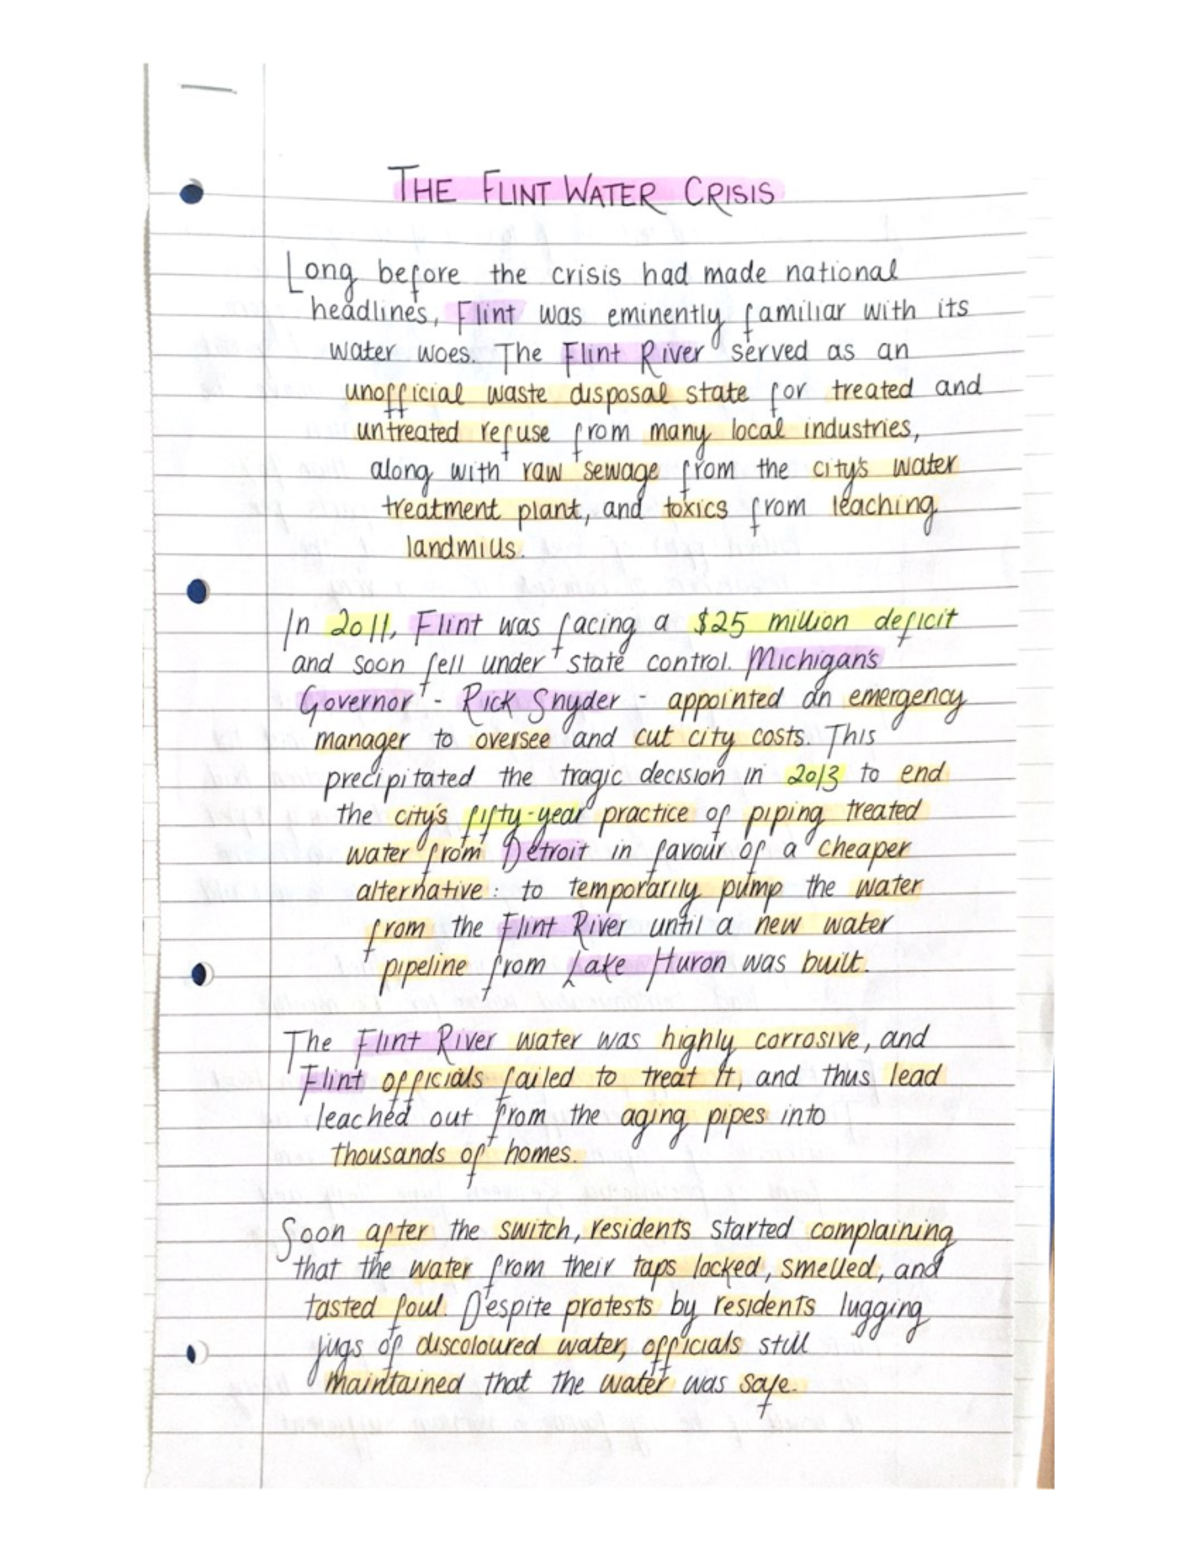 THE FLINT WATER CRISIS
Long before the crisis had made national
headlines, Flint was eminently familiar with its
water woes. The Flint River served as an
unofficial waste disposal state for treated and
untreated refuse from many local industries,
along with raw sewage from the city's water
treatment plant, and toxics from leaching
landmius.
In 2011, Flint was facing a $25 million deficit
and soon fell under state control. Michigan's
Governor - Rick Snyder - appointed an emergency
manager to oversee and cut city costs. This
precipitated the tragic decision in 2013 to end
the city's fifty-year practice of piping treated
water from Detroit in favour of a cheaper
alternative: to temporarily pump the water
from the Flint River until a new water
pipeline from Lake Huron was built.
The Flint River water was highly corrosive, and
Flint officials failed to treat it, and thus lead
leached out from the aging pipes into
thousands of homes.
Soon after the switch, residents started complaining
that the water from their taps locked, smelled, and
tasted foul. Despite protests by residents lugging
jugs of discoloured water, officials still
maintained that the water was safe.